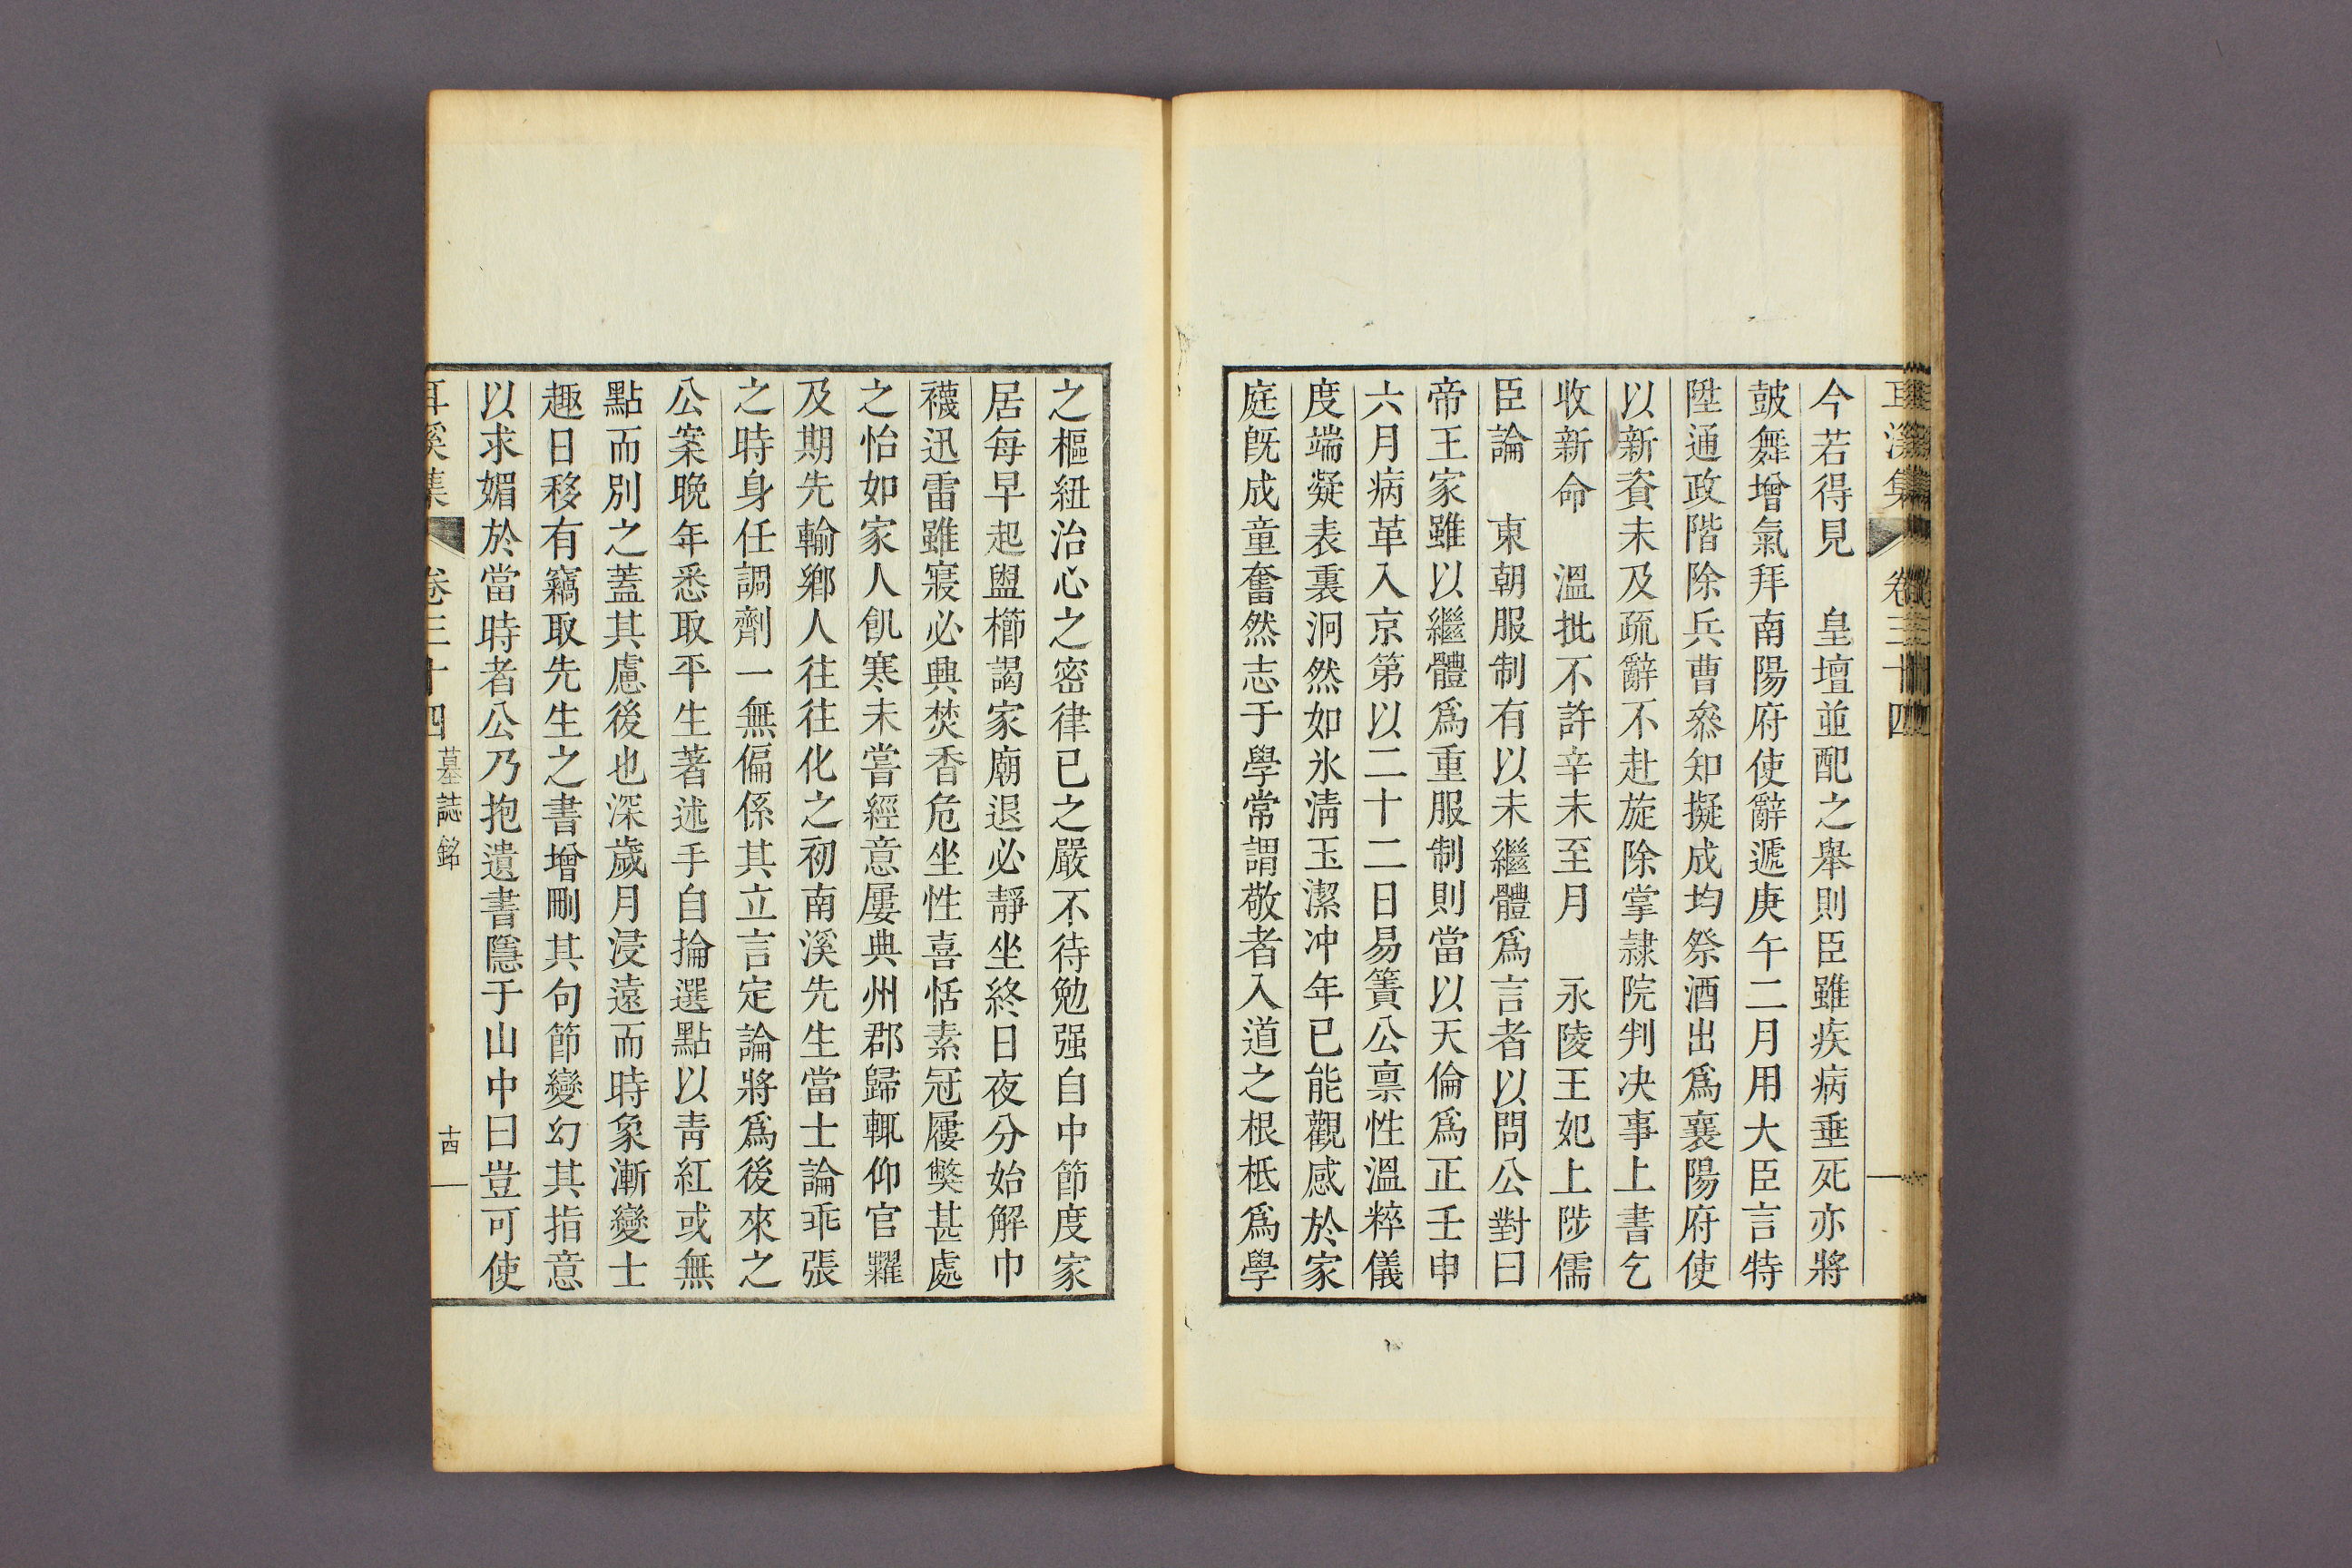 耳溪集 卷三十四
今若得見　皇壇並配之舉則臣雖疾病垂死亦將
皷舞增氣拜南陽府使辭遞庚午二月用大臣言特
陞通政階除兵曹叅知擬成均祭酒出爲襄陽府使
以新資未及疏辭不赴旋除掌隷院判决事上書乞
收新命　溫批不許辛未至月　永陵王妃上陟儒
臣論　東朝服制有以未繼體爲言者以問公對曰
帝王家雖以繼體爲重服制則當以天倫爲正壬申
六月病革入京第以二十二日易簀公禀性溫粹儀
度端凝表裏洞然如氷清玉潔冲年已能觀感於家
庭旣成童奮然志于學常謂敬者入道之根柢爲學
之樞紐治心之密律己之嚴不待勉强自中節度家
居每早起盥櫛謁家廟退必靜坐終日夜分始解巾
襪迅雷雖寢必興焚香危坐性喜恬素冠屨獘甚處
之怡如家人飢寒未嘗經意屢典州郡歸輒仰官糶
及期先輸鄕人往往化之初南溪先生當士論乖張
之時身任調劑一無偏係其立言定論將爲後來之
公案晩年悉取平生著述手自掄選點以靑紅或無
點而別之蓋其慮後也深歲月浸遠而時象漸變士
趣日移有竊取先生之書增刪其句節變幻其指意
以求媚於當時者公乃抱遺書隱于山中曰豈可使
耳溪集 卷三十四 墓誌銘 十四